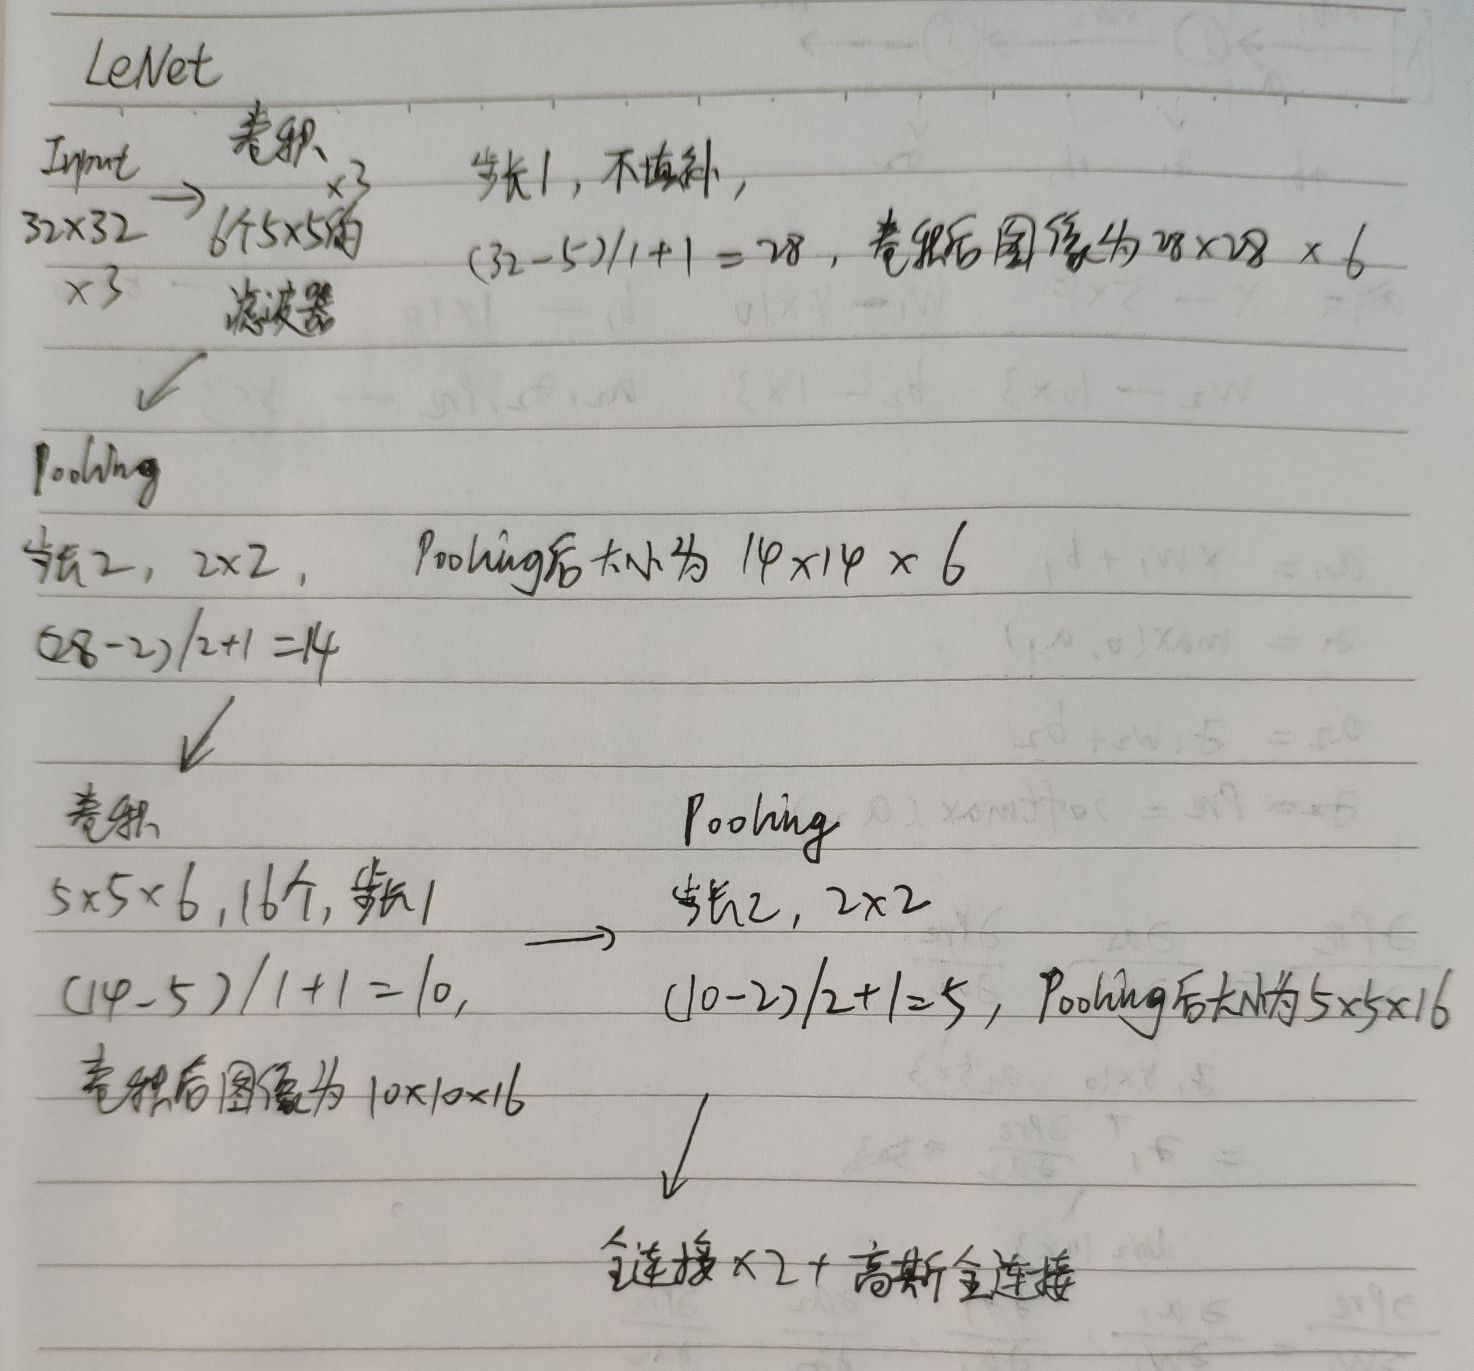 LeNet
Input
32×32
×3
→
卷积
6个5×5×3的
滤波器
步长1，不填补，
(32-5)/1+1=28，卷积后图像为28×28×6
↙
Pooling
步长2，2×2，
(28-2)/2+1=14
Pooling后大小为14×14×6
↙
卷积
5×5×6，16个，步长1
(14-5)/1+1=10，
卷积后图像为10×10×16
→
Pooling
步长2，2×2
(10-2)/2+1=5，Pooling后大小为5×5×16
↙
全连接×2+高斯全连接